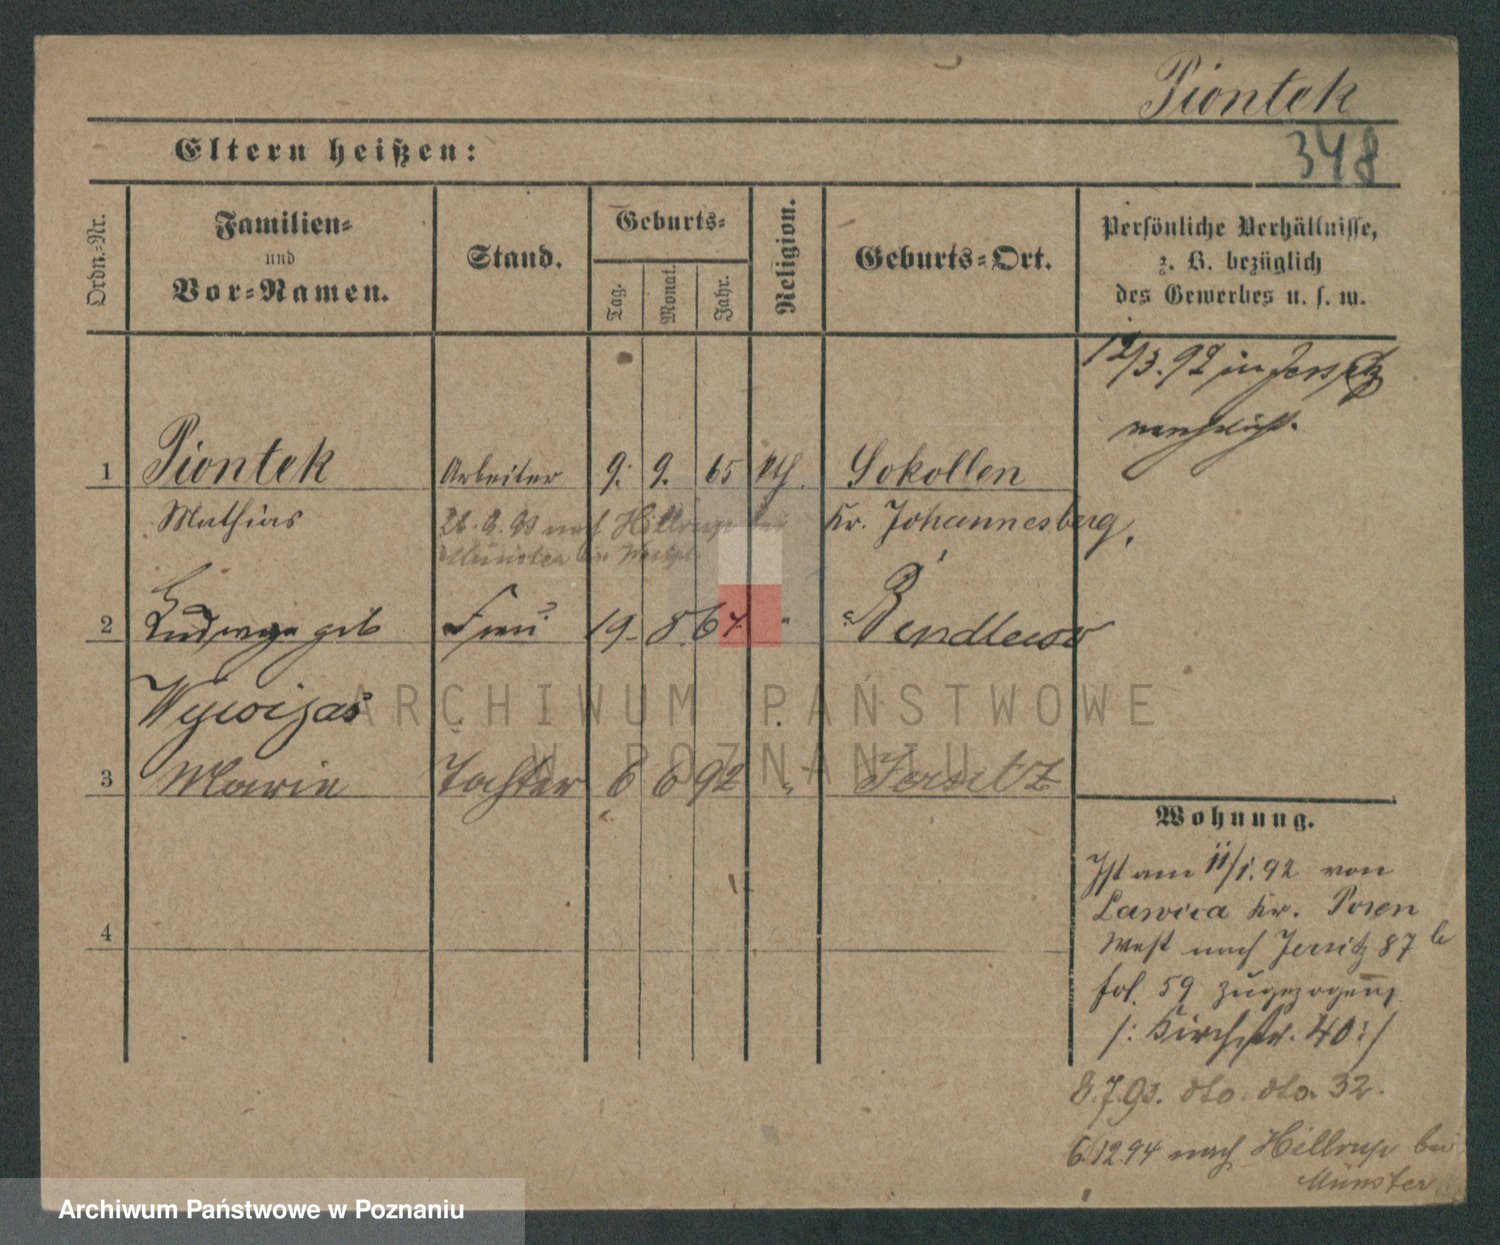 Piontek
348
Eltern heißen:
Ordn.-Nr.
Familien-
und
Vor-Namen.
Stand.
Geburts-
Tag.
Monat.
Jahr.
Religion.
Geburts-Ort.
Persönliche Verhältnisse,
z. B. bezüglich
des Gewerbes u. s. w.
12/3. 92 in Jersitz
verehelicht.
1 Piontek Arbeiter 9. 9. 65 kth. Sokollen
Mathias Kr. Johannesberg,
nach Hiltrup bei
Münster in Westf.
2 Ludwiga geb Frau 19. 8. 67 " Bendlewo
Wywijas
3 Marie Tochter 6 6 92 " Jersitz
4
Wohnung.
Ist am 11/1. 92 von
Lawica Kr. Posen
West nach Jersitz 87 b
fol. 59 zugezogen,
/: Kirchstr. 40 :/
8.7.93. dto. dto. 32.
6.12.94 nach Hiltrup bei
Münster
ARCHIWUM PAŃSTWOWE
W POZNANIU
Archiwum Państwowe w Poznaniu